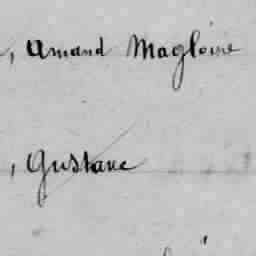 , Amand Magloire
, Gustave